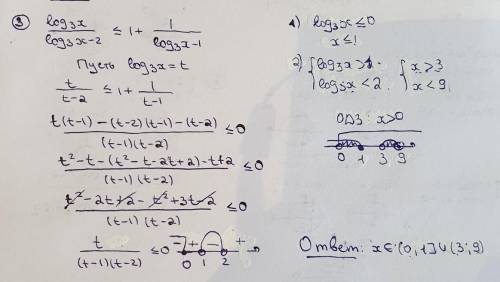 ③ log₃x / (log₃x-2) ≤ 1 + 1 / (log₃x-1)
Пусть log₃x = t
t / (t-2) ≤ 1 + 1 / (t-1)
(t(t-1) - (t-2)(t-1) - (t-2)) / ((t-1)(t-2)) ≤ 0
(t² - t - (t² - t - 2t + 2) - t + 2) / ((t-1)(t-2)) ≤ 0
(t² - 2t + 2 - t² + 3t - 2) / ((t-1)(t-2)) ≤ 0
t / ((t-1)(t-2)) ≤ 0
- + - +
0 1 2
1) log₃x ≤ 0
x ≤ 1
2) { log₃x > 1 { x > 3
log₃x < 2 x < 9
ОДЗ: x>0
0 1 3 9
Ответ: x ∈ (0, 1] ∪ (3; 9)